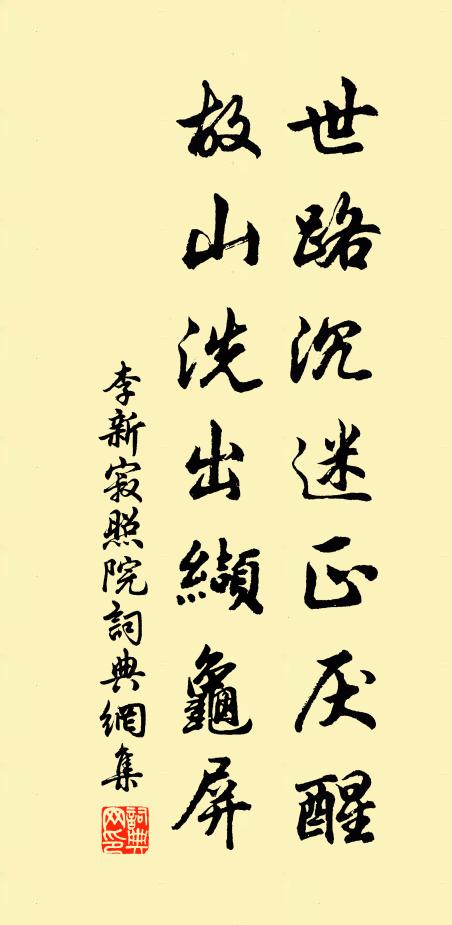 世路沉迷正厌醒
故山洗出缬龜屏
李新寂照院詞典網集
詞典网印